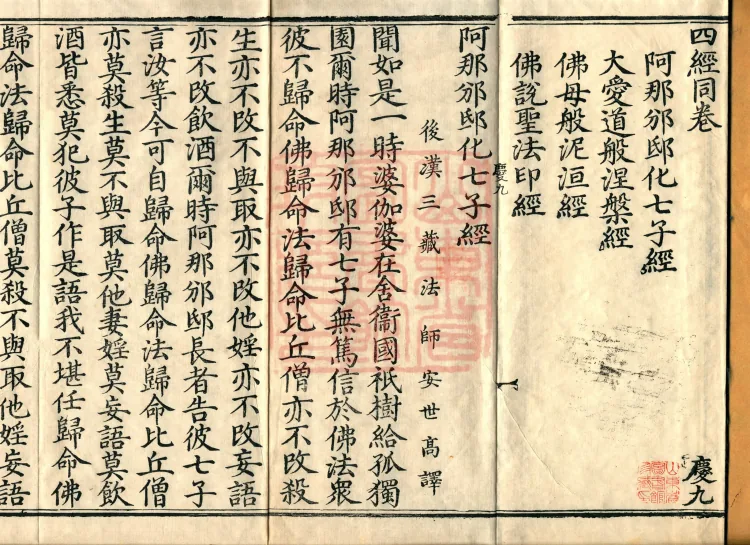 四經同卷 慶九
阿那邠邸化七子經
大愛道般涅槃經
佛母般泥洹經
佛說聖法印經
慶九
阿那邠邸化七子經
後漢三藏法師安世高譯
聞如是一時婆伽婆在舍衞國祇樹給孤獨
園爾時阿那邠邸有七子無篤信於佛法衆
彼不歸命佛歸命法歸命比丘僧亦不改殺
生亦不改不與取亦不改他婬亦不改妄語
亦不改飲酒爾時阿那邠邸長者告彼七子
言汝等今可自歸命佛歸命法歸命比丘僧
亦莫殺生莫不與取莫他妻婬莫妄語莫飲
酒皆悉莫犯彼子作是語我不堪任歸命佛
歸命法歸命比丘僧莫殺不與取他婬妄語